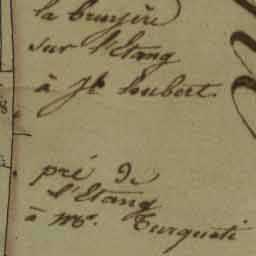 la bruyère
sur l'Etang
à Jh loubert.
pré De
l'Etang
à mr. Turquoti